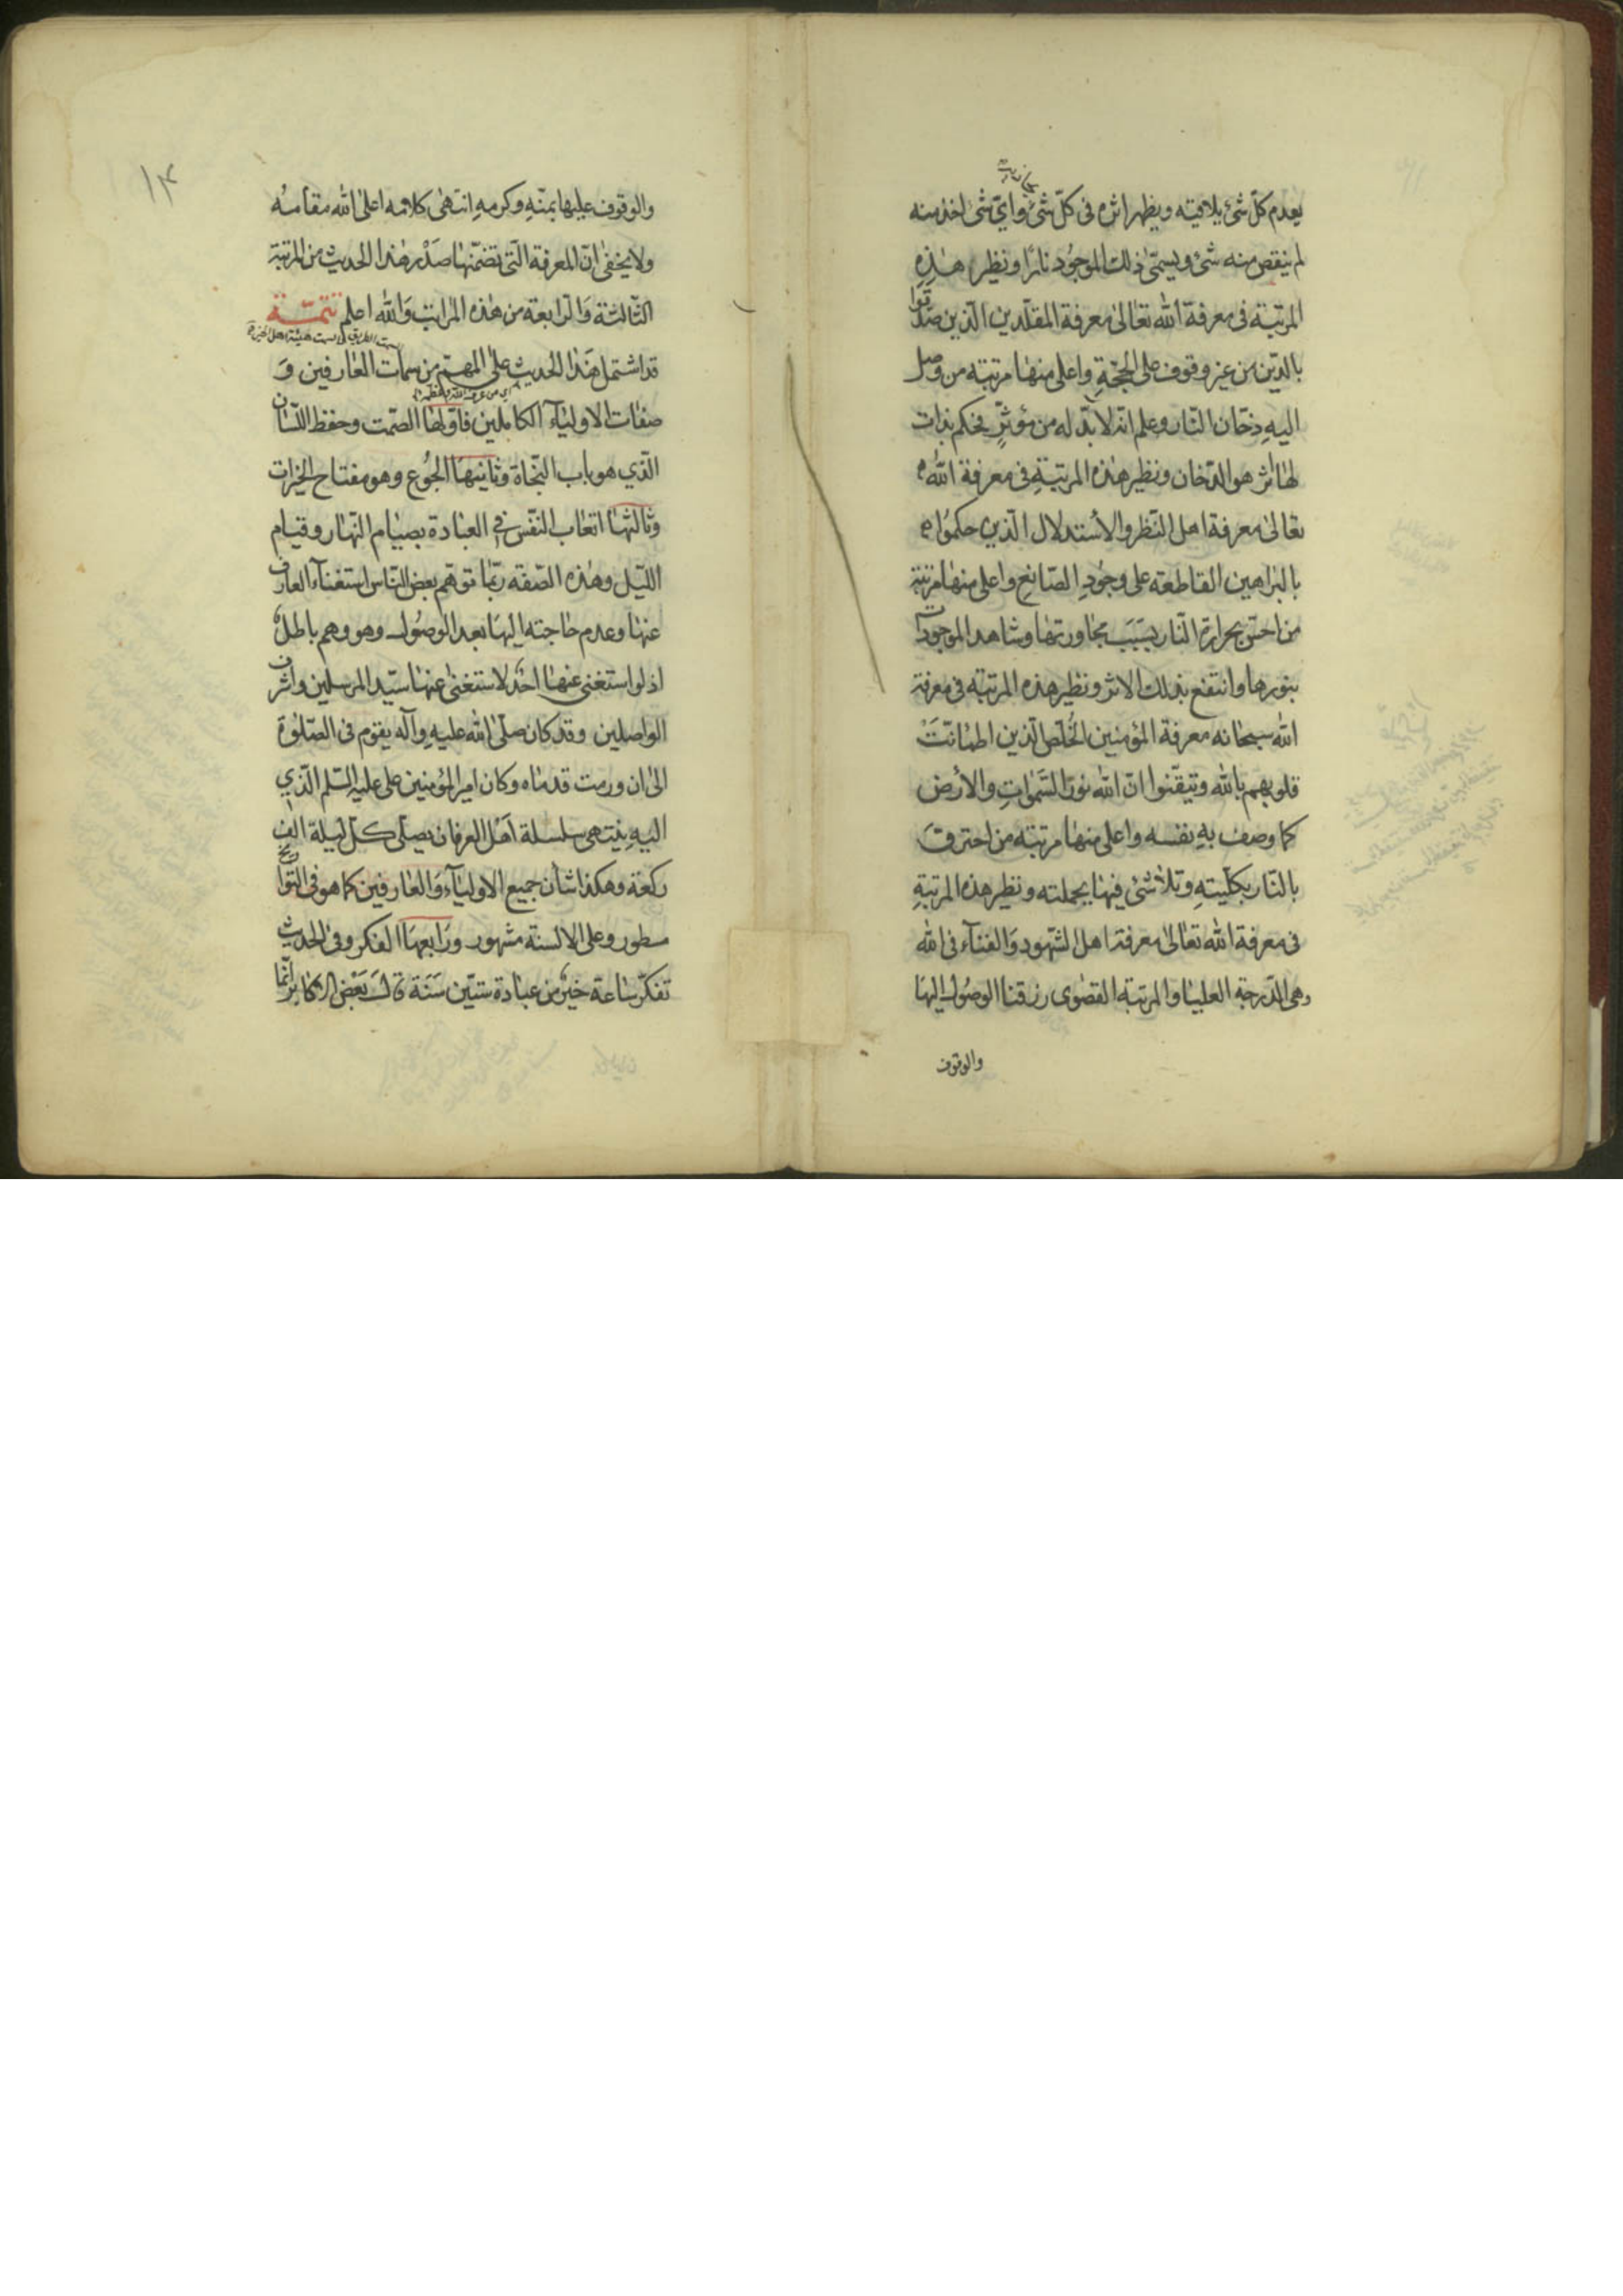 يعدم كلّ شئ يلاقيته ويظهر اثره فى كلّ شئ وايّ شئ اخذ منه
لم ينقص منه شئ ويسمّى ذلك الموجُود نارًا ونظير هذِهِ
المرتبة فى معرفة الله تعالىٰ معرفة المقلّدين الّذين صدّقوا
بالدّين من غير وقوف على الحجّةِ واعلى منها مرتبة من وصل
اليهِ دخّان النّار وعلم انّه لا بدّ له من مؤثّرٍ فحكم بذات
لها اثر هو الدّخان ونظير هٰذه المرتبةِ فى معرفة اللّٰه
تعالىٰ معرفة اهل النّظر والأستدلال الّذين حكمُوا
بالبراهين القاطعه على وجُودِ الصّانعِ واعلى منها مرتبة
من احسّ بحرارة النّار بسَبَب مجاورتها وشاهد الموجودات
بنورها وانتفع بذلك الاثر ونظير هذه المرتبة فى معرفة
الله سبحانه معرفة المؤمنين الخُلّص الّذين اطمانّتْ
قلوبهم بالله وتيقّنوا انّ اللّٰه نورُ السّمٰواتِ والأرض
كما وصف بهِ نفسه واعلى منها مرتبة من احترقَ
بالنّار بكلّيتهِ وتلاشىٰ فيها بجملته ونظير هذه المرتبةِ
فى معرفة الله تعالىٰ معرفة اهل الشّهود وَالفنآء فى اللّٰه
وهى الدّرجة العليا والمرتبة القصوى رزقنا الوصُول اليها
والوقوف
١٣
والوقوف عليها بمنّهِ وكرمهِ انتهىٰ كلامه اعلىٰ الله مقامهُ
ولا يخفىٰ انّ المعرفة الّتى تضمّنها صَدْر هٰذا الحديث من المرتبة
الثّالثة وَالرّابعة من هٰذه المراتب وَالله اعلم تتمّة
قد اشتمل هَذا الحُديث على المهمّ من سمات العٰارفين وَ
صفٰات الاوليآء الكاملين فاوّلها الصّمت وحفظ اللّسان
الّذي هو باب النّجاة وثٰانيهَا الجُوع وهو مفتاح الخيرات
وثالثها اتعٰاب النّفس فى العبٰادة بصيٰام النّهار وقيام
اللّيل وهٰذه الصّفة ربّما توهّم بعض النّاس استغنآء العارف
عنها وعدم حٰاجته اليهَا بعد الوصُول وهو وهم باطلٌ
اذ لو استغنى عنها احدٌ لاستغنىٰ عنها سيّد المرسلين واشرف
الواصلين وقد كان صلّى اللّٰه عليهِ وآله يقوم فى الصّلوٰة
الىٰ ان ورمت قدمٰاه وكان امير المؤمنين على عليه السّلم الّذي
اليهِ ينتهى سلسلة اَهْل العرفان يصلّى كلّ ليلة الف
ركعة وهكذا شان جميع الاوليٰآء وَالعٰارفين كما هو فى التواريخ
مسطور وعلى الالسنة مشهور ورَابعهَا الفكر وفى الحديث
تفكّر سٰاعة خيرٌ من عبٰادة ستّين سَنَة قالَ بَعْض الاكابر انّما